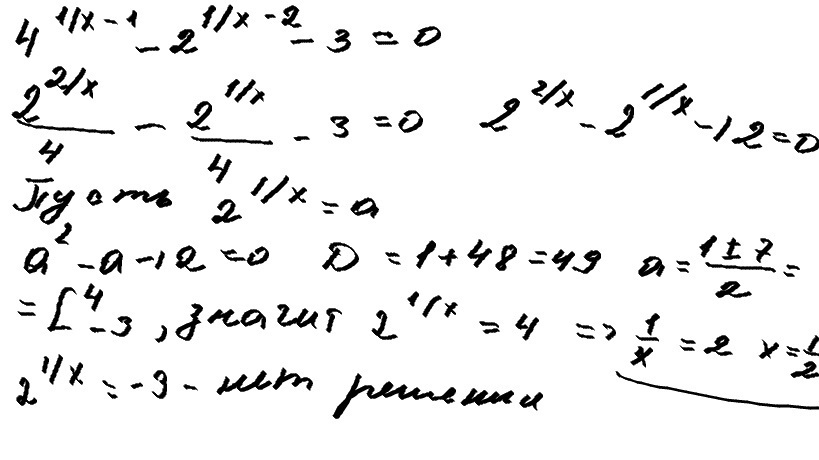 4^(1/x-1) - 2^(1/x-2) - 3 = 0
2^(2/x)/4 - 2^(1/x)/4 - 3 = 0 2^(2/x) - 2^(1/x) - 12 = 0
Пусть 2^(1/x) = a
a^2 - a - 12 = 0 D = 1 + 48 = 49 a = (1 ± 7)/2 =
= [4 -3, значит 2^(1/x) = 4 => 1/x = 2 x = 1/2
2^(1/x) = -3 - нет решения